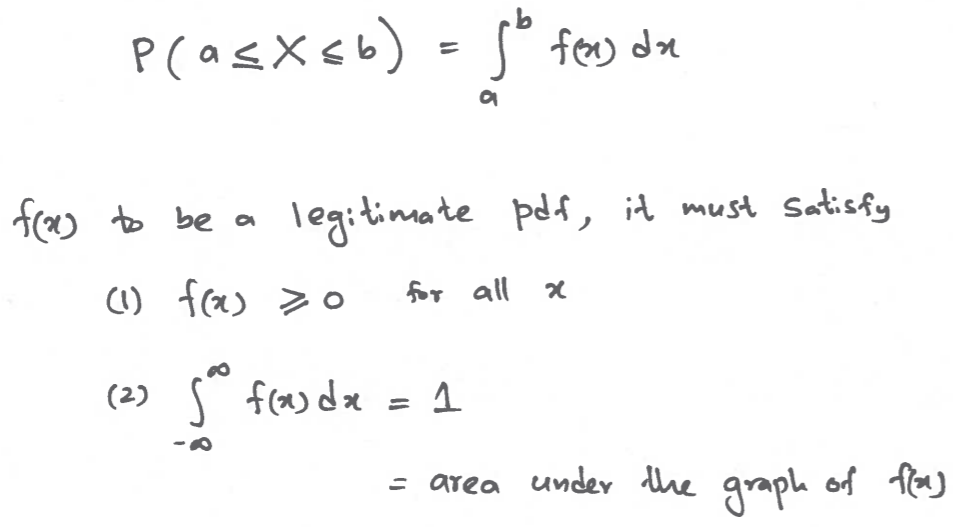 P(a ≤ X ≤ b) = ∫_a^b f(x) dx
f(x) to be a legitimate pdf, it must satisfy
(1) f(x) ⩾ 0 for all x
(2) ∫_{-∞}^{∞} f(x) dx = 1
= area under the graph of f(x)